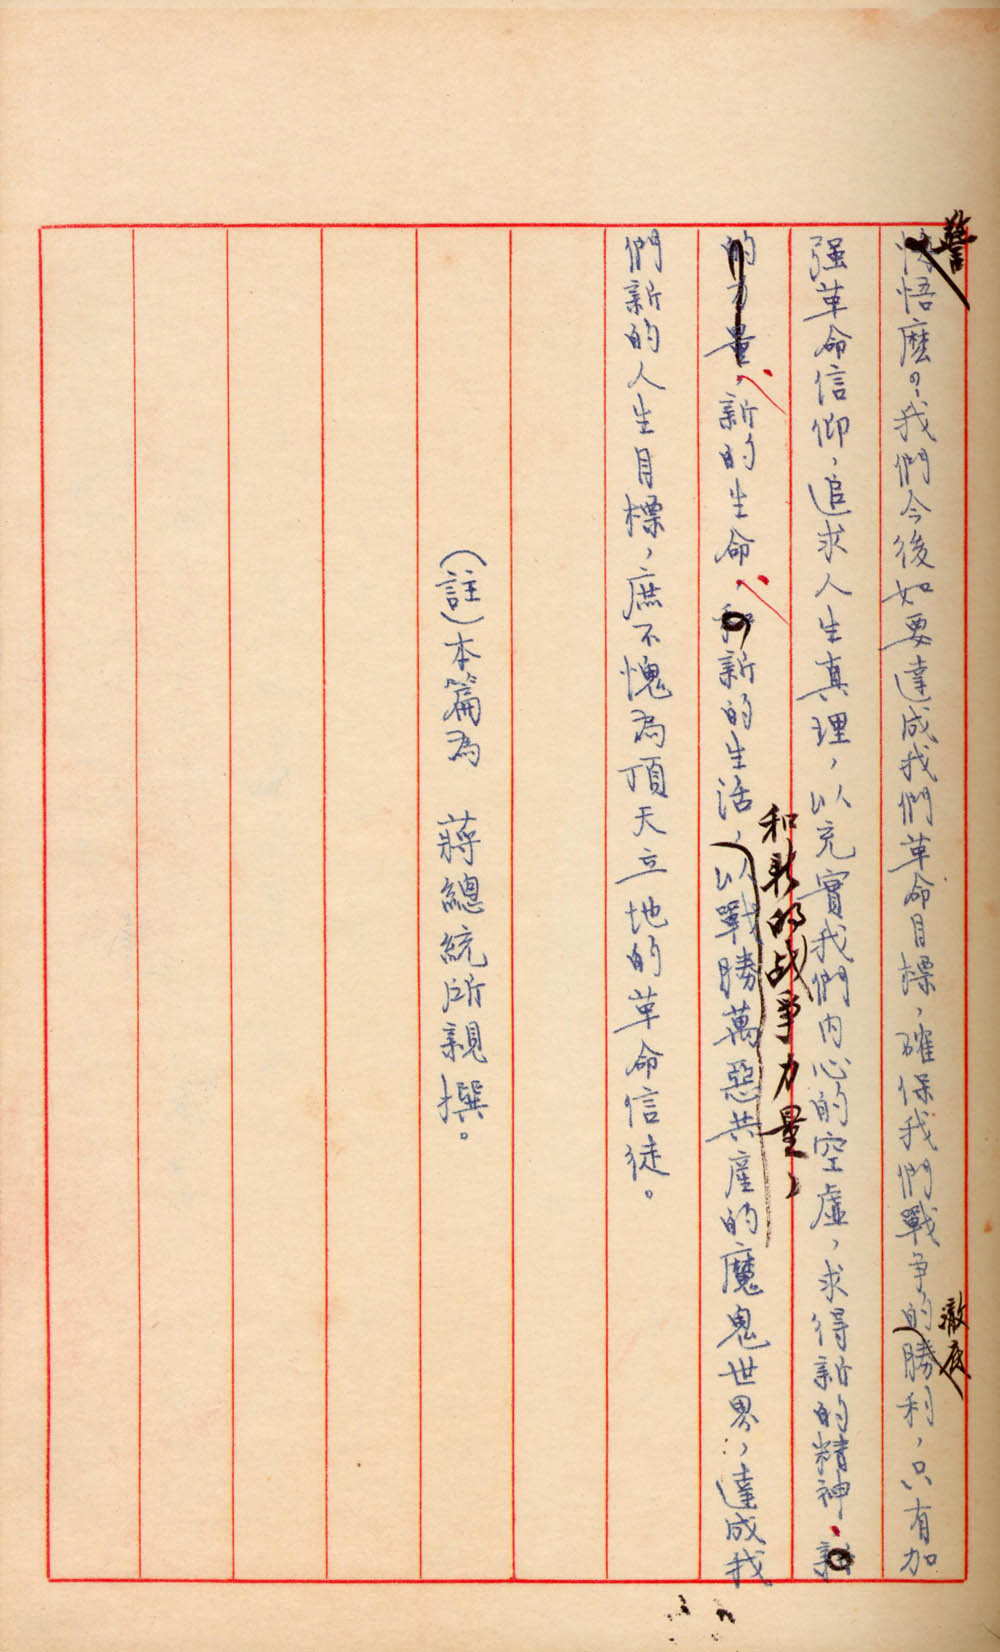 警
悟麽？我們今後如要達成我們革命目標，確保我們戰爭的勝利，只有加
徹底
强革命信仰，追求人生真理，以充實我們內心的空虛，求得新的精神、新
和新的战爭力量，
的力量，新的生命，和新的生活，以戰勝萬惡共產的魔鬼世界，達成我
們新的人生目標，庶不愧為頂天立地的革命信徒。
（註）本篇為　蔣總統所親撰。